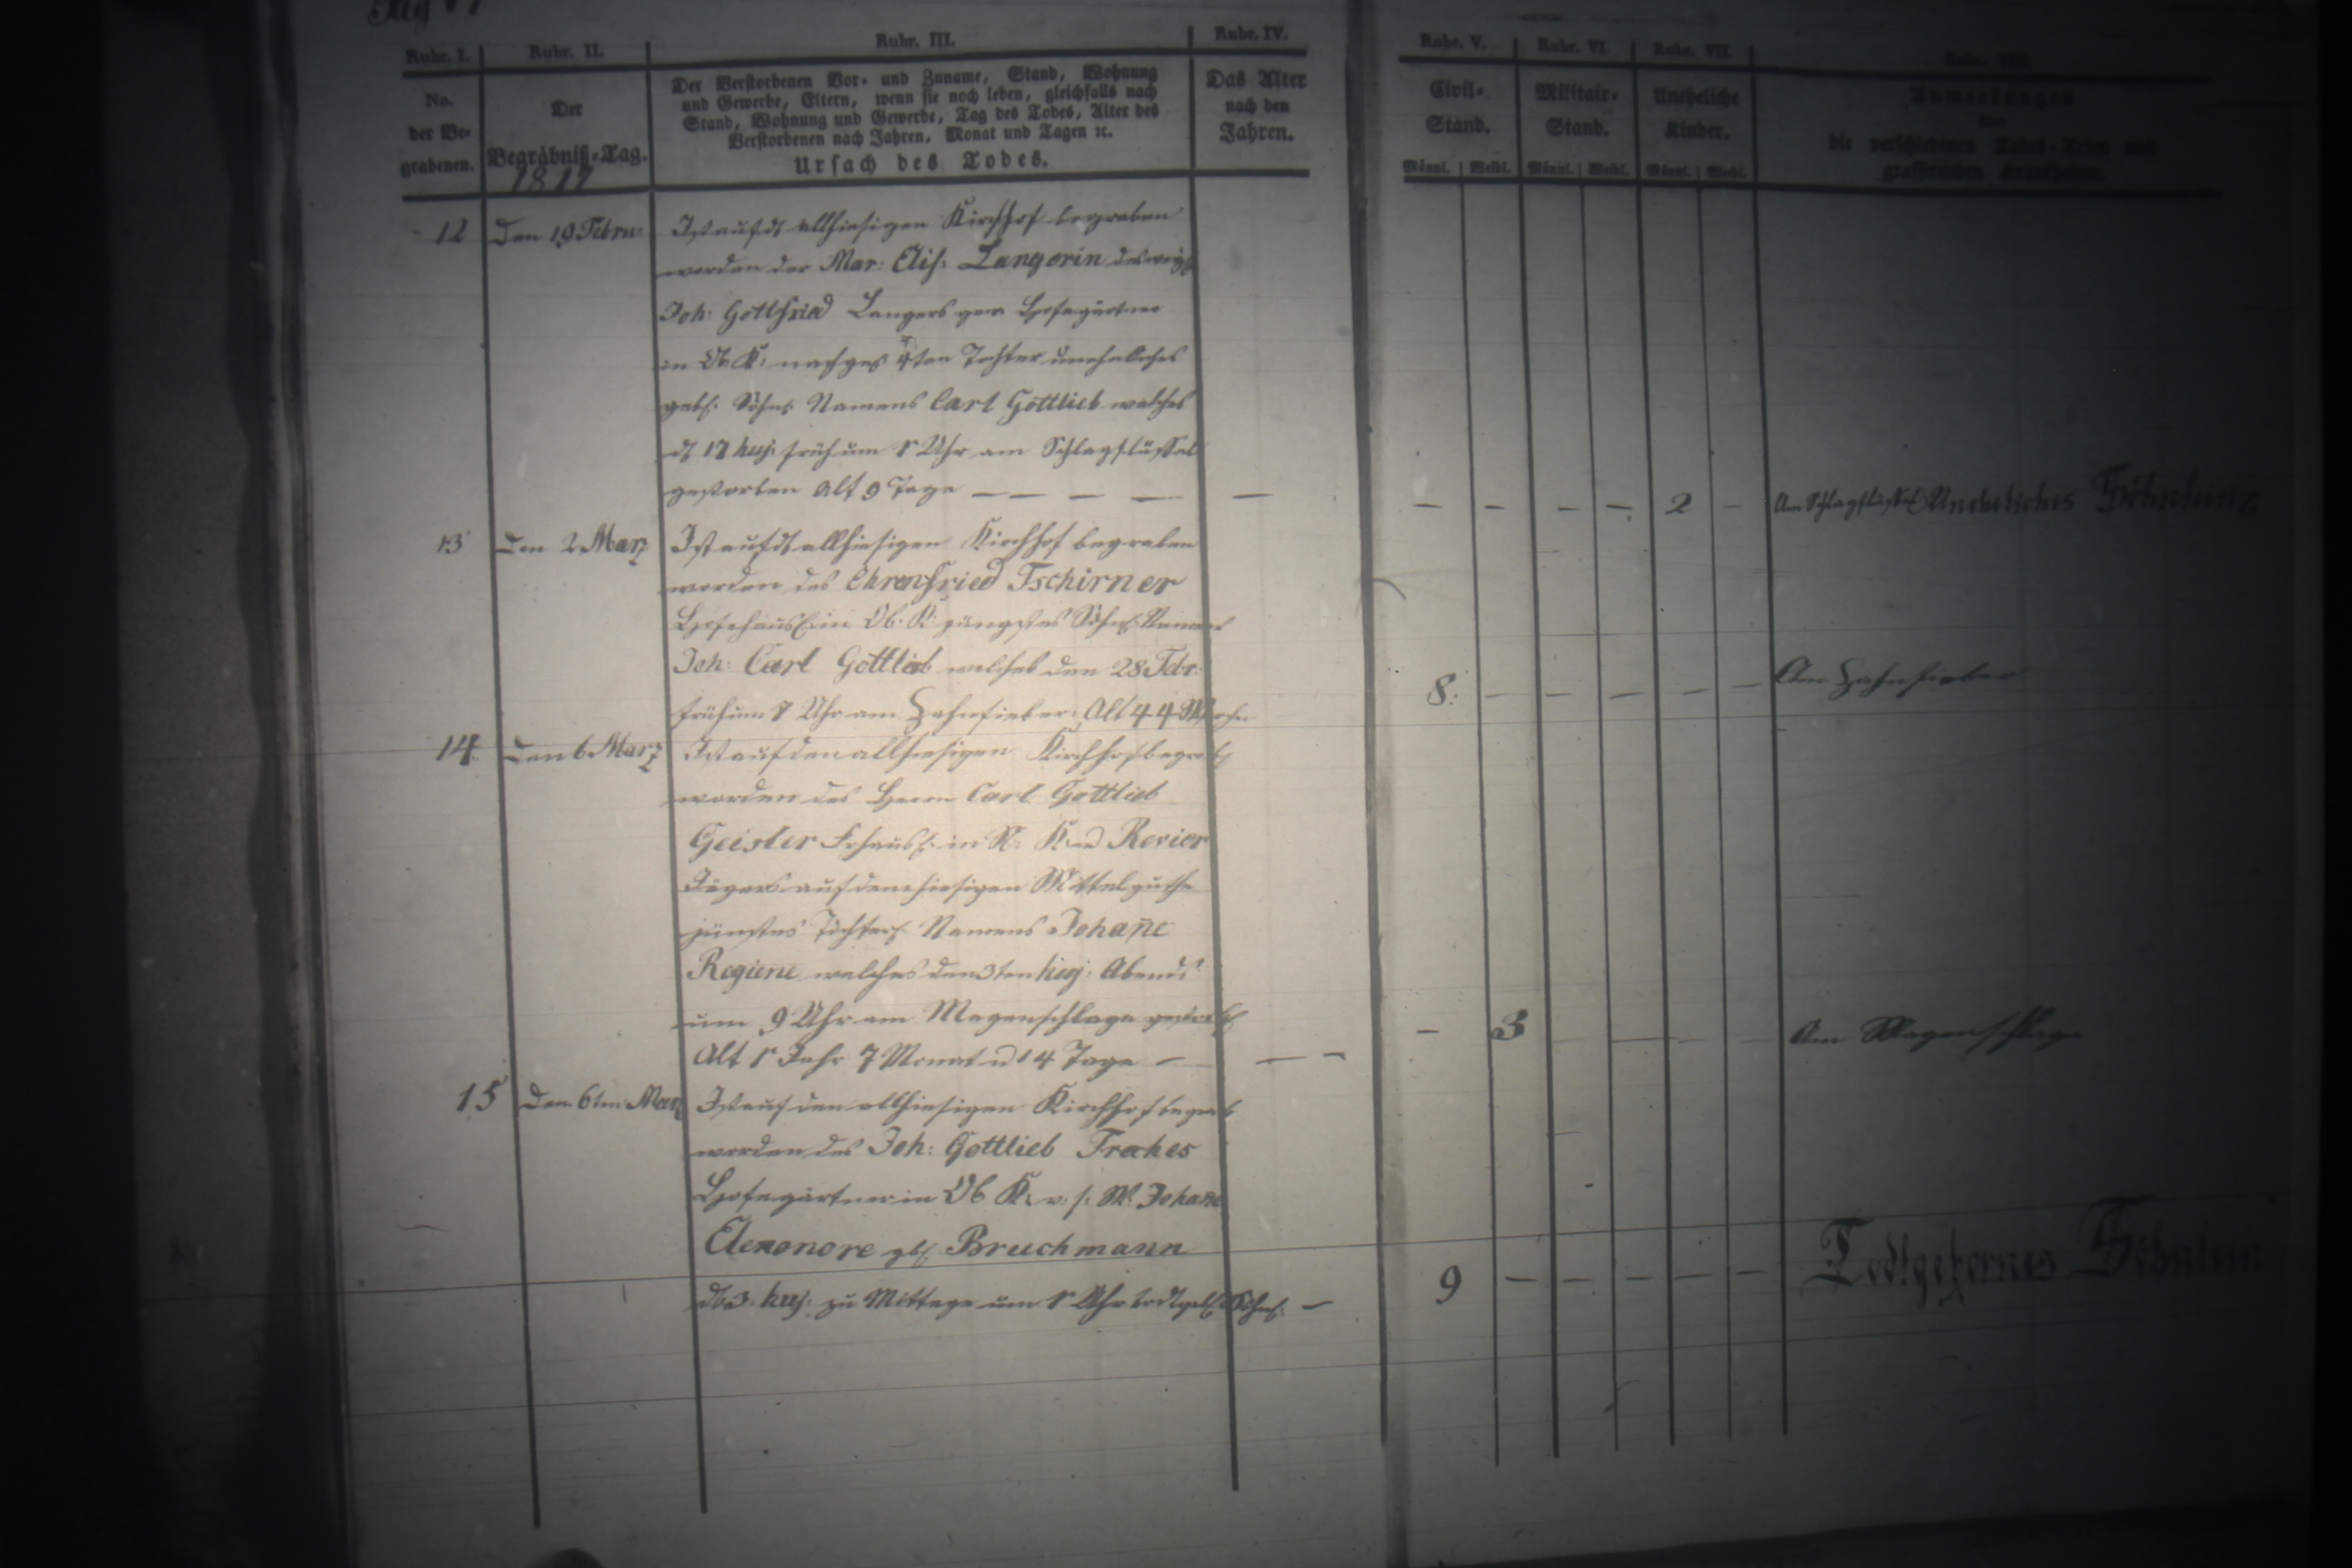 Rubr. I. Rubr. II. Rubr. III. Rubr. IV. Rubr. V. Rubr. VI. Rubr. VII. Rubr. VIII.
No. der Be- grabenen.
Der Begräbniß-Tag.
1817
Der Verstorbenen Vor- und Zuname, Stand, Wohnung
und Gewerbe, Eltern, wenn sie noch leben, gleichfalls nach
Stand, Wohnung und Gewerbe, Tag des Todes, Alter des
Verstorbenen nach Jahren, Monat und Tagen ꝛc.
Ursach des Todes.
Das Alter
nach den
Jahren.
Civil-
Stand.
Militair-
Stand.
Uneheliche
Kinder.
Anmerkungen
über
die verschiedenen Todes-Arten und
grassirenden Krankheiten.
Männl. Weibl. Männl. Weibl. Männl. Weibl.
12 Den 19 Febru: Ist auf d allhiesigen Kirchhof begraben
worden der Mar: Elis: Langerin des
Joh: Gottfried Langers gew. Hofegärtner
in Ob. K: 4ten Tochter uneheliches
geb. Söhnl. Namens Carl Gottlieb welches
d 17 huj: früh um 8 Uhr am Schlagflüssel
gestorben Alt 9 Tage — — — — —
— — — — 2 — Am Schlagflüssel Uneheliches Söhnlein
13 Den 2 Marz Ist auf d allhiesigen Kirchhof begraben
worden des Ehrenfried Tschirner
Hofehäusl. in Ob. K. jüngstes Söhnl. Namens
Joh: Carl Gottlieb welches den 28 Febr:
früh um 8 Uhr am Zahnfieber: Alt 44 Woche
8. — — — — — Am Zahnfieber
14. Den 6 Marz Ist auf den allhiesigen Kirchhof begrab
worden des Herrn Carl Gottlieb
Geisler Frhäusl. in N. K. u Revier
Jägers auf dem hiesigen Mittelguthe
jüngstes Töchterl. Namens Johane
Regiene welches den 3ten huj: Abends
um 9 Uhr am Magenschlage gestorb
Alt 1 Jahr 7 Monat u 14 Tage — — —
— 3 Am Magenschlage
15 Den 6ten Marz Ist auf den allhiesigen Kirchhof begrab
worden des Joh: Gottlieb
Hofegärtner in Ob K. v. s. W. Johane
Elenonore geb. Bruchmann
d 3 huj: zu Mittage um 1 Uhr todtgeb. Söhnl. —
9 — — — — — Todtgebornes Söhnlein